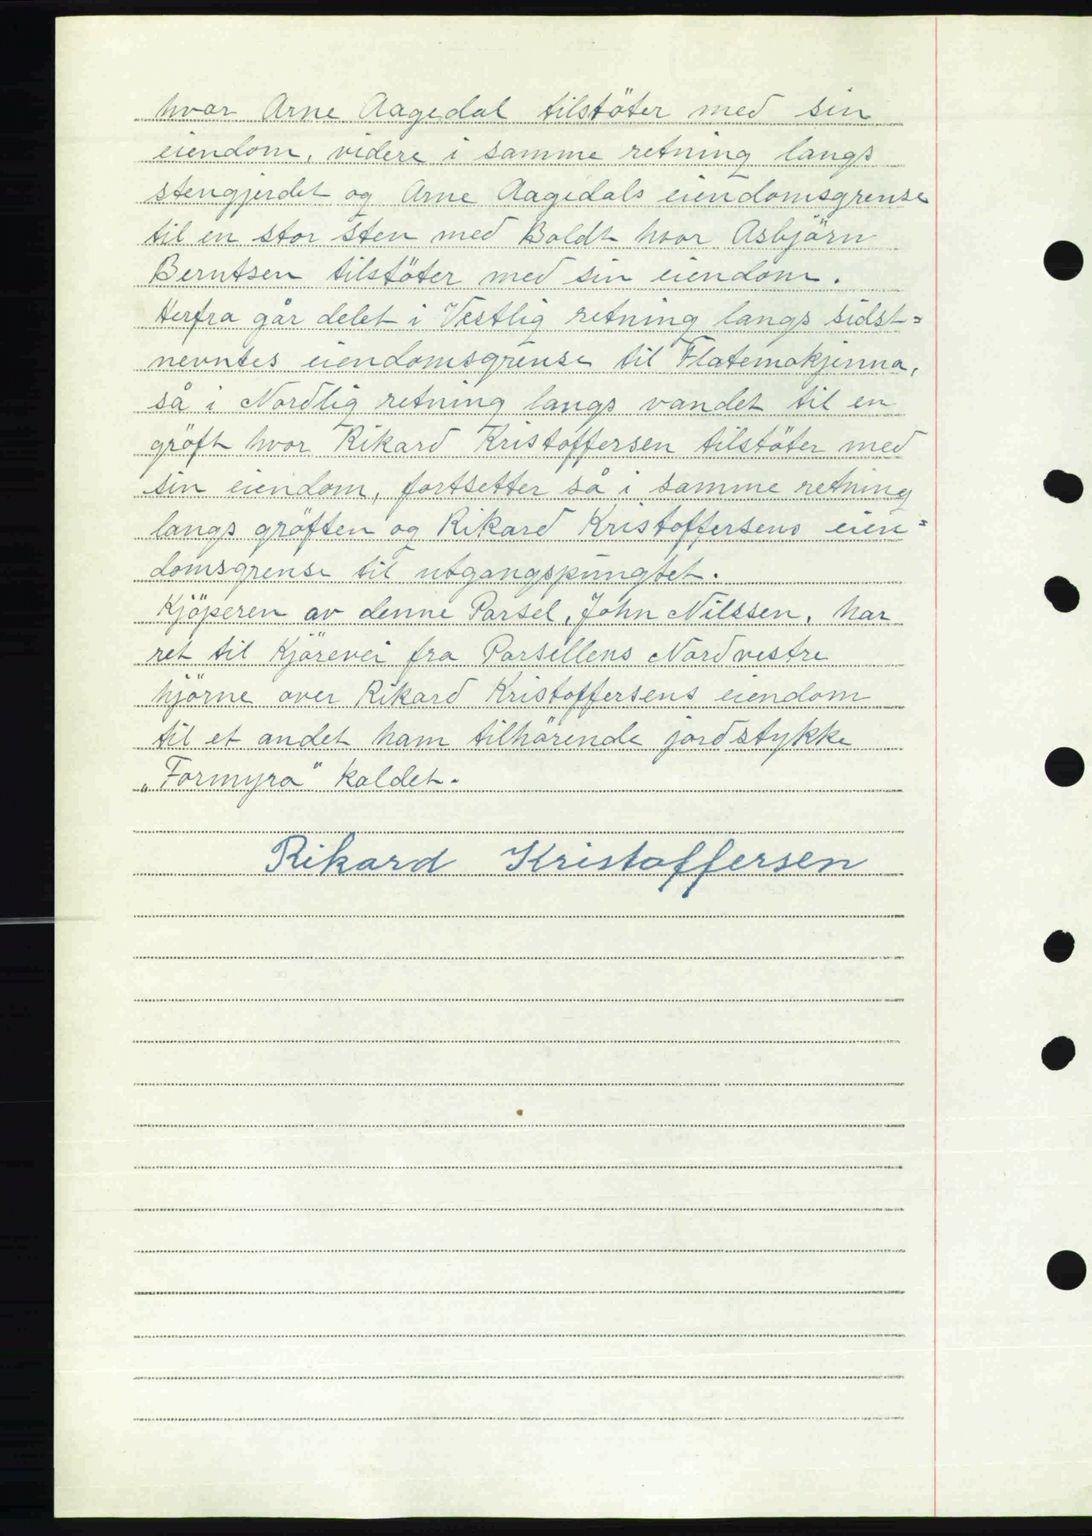 hvor Arne Aagedal tilstöter med sin
eiendom, videre i samme retning langs
stengjerdet og Arne Aagedals eiendomsgrense
til en stor sten med Boldt hvor Asbjörn
Berntsen tilstöter med sin eiendom.
Herfra går delet i Vestlig retning langs sidst=
nevntes eiendomsgrense til Flatemokjenna,
så i Nordlig retning langs vandet til en
gröft hvor Rikard Kristoffersen tilstöter med
sin eiendom, fortsetter så i samme retning
langs gröften og Rikard Kristoffersens eien=
domsgrense til utgangspungtet.
Kjöperen av denne Parsel, John Nilssen, har
ret til Kjörevei fra Parsellens Nordvestre
hjörne over Rikard Kristoffersens eiendom
til et andet ham tilhörende jordstykke
„Formyra" kaldet.
Rikard Kristoffersen